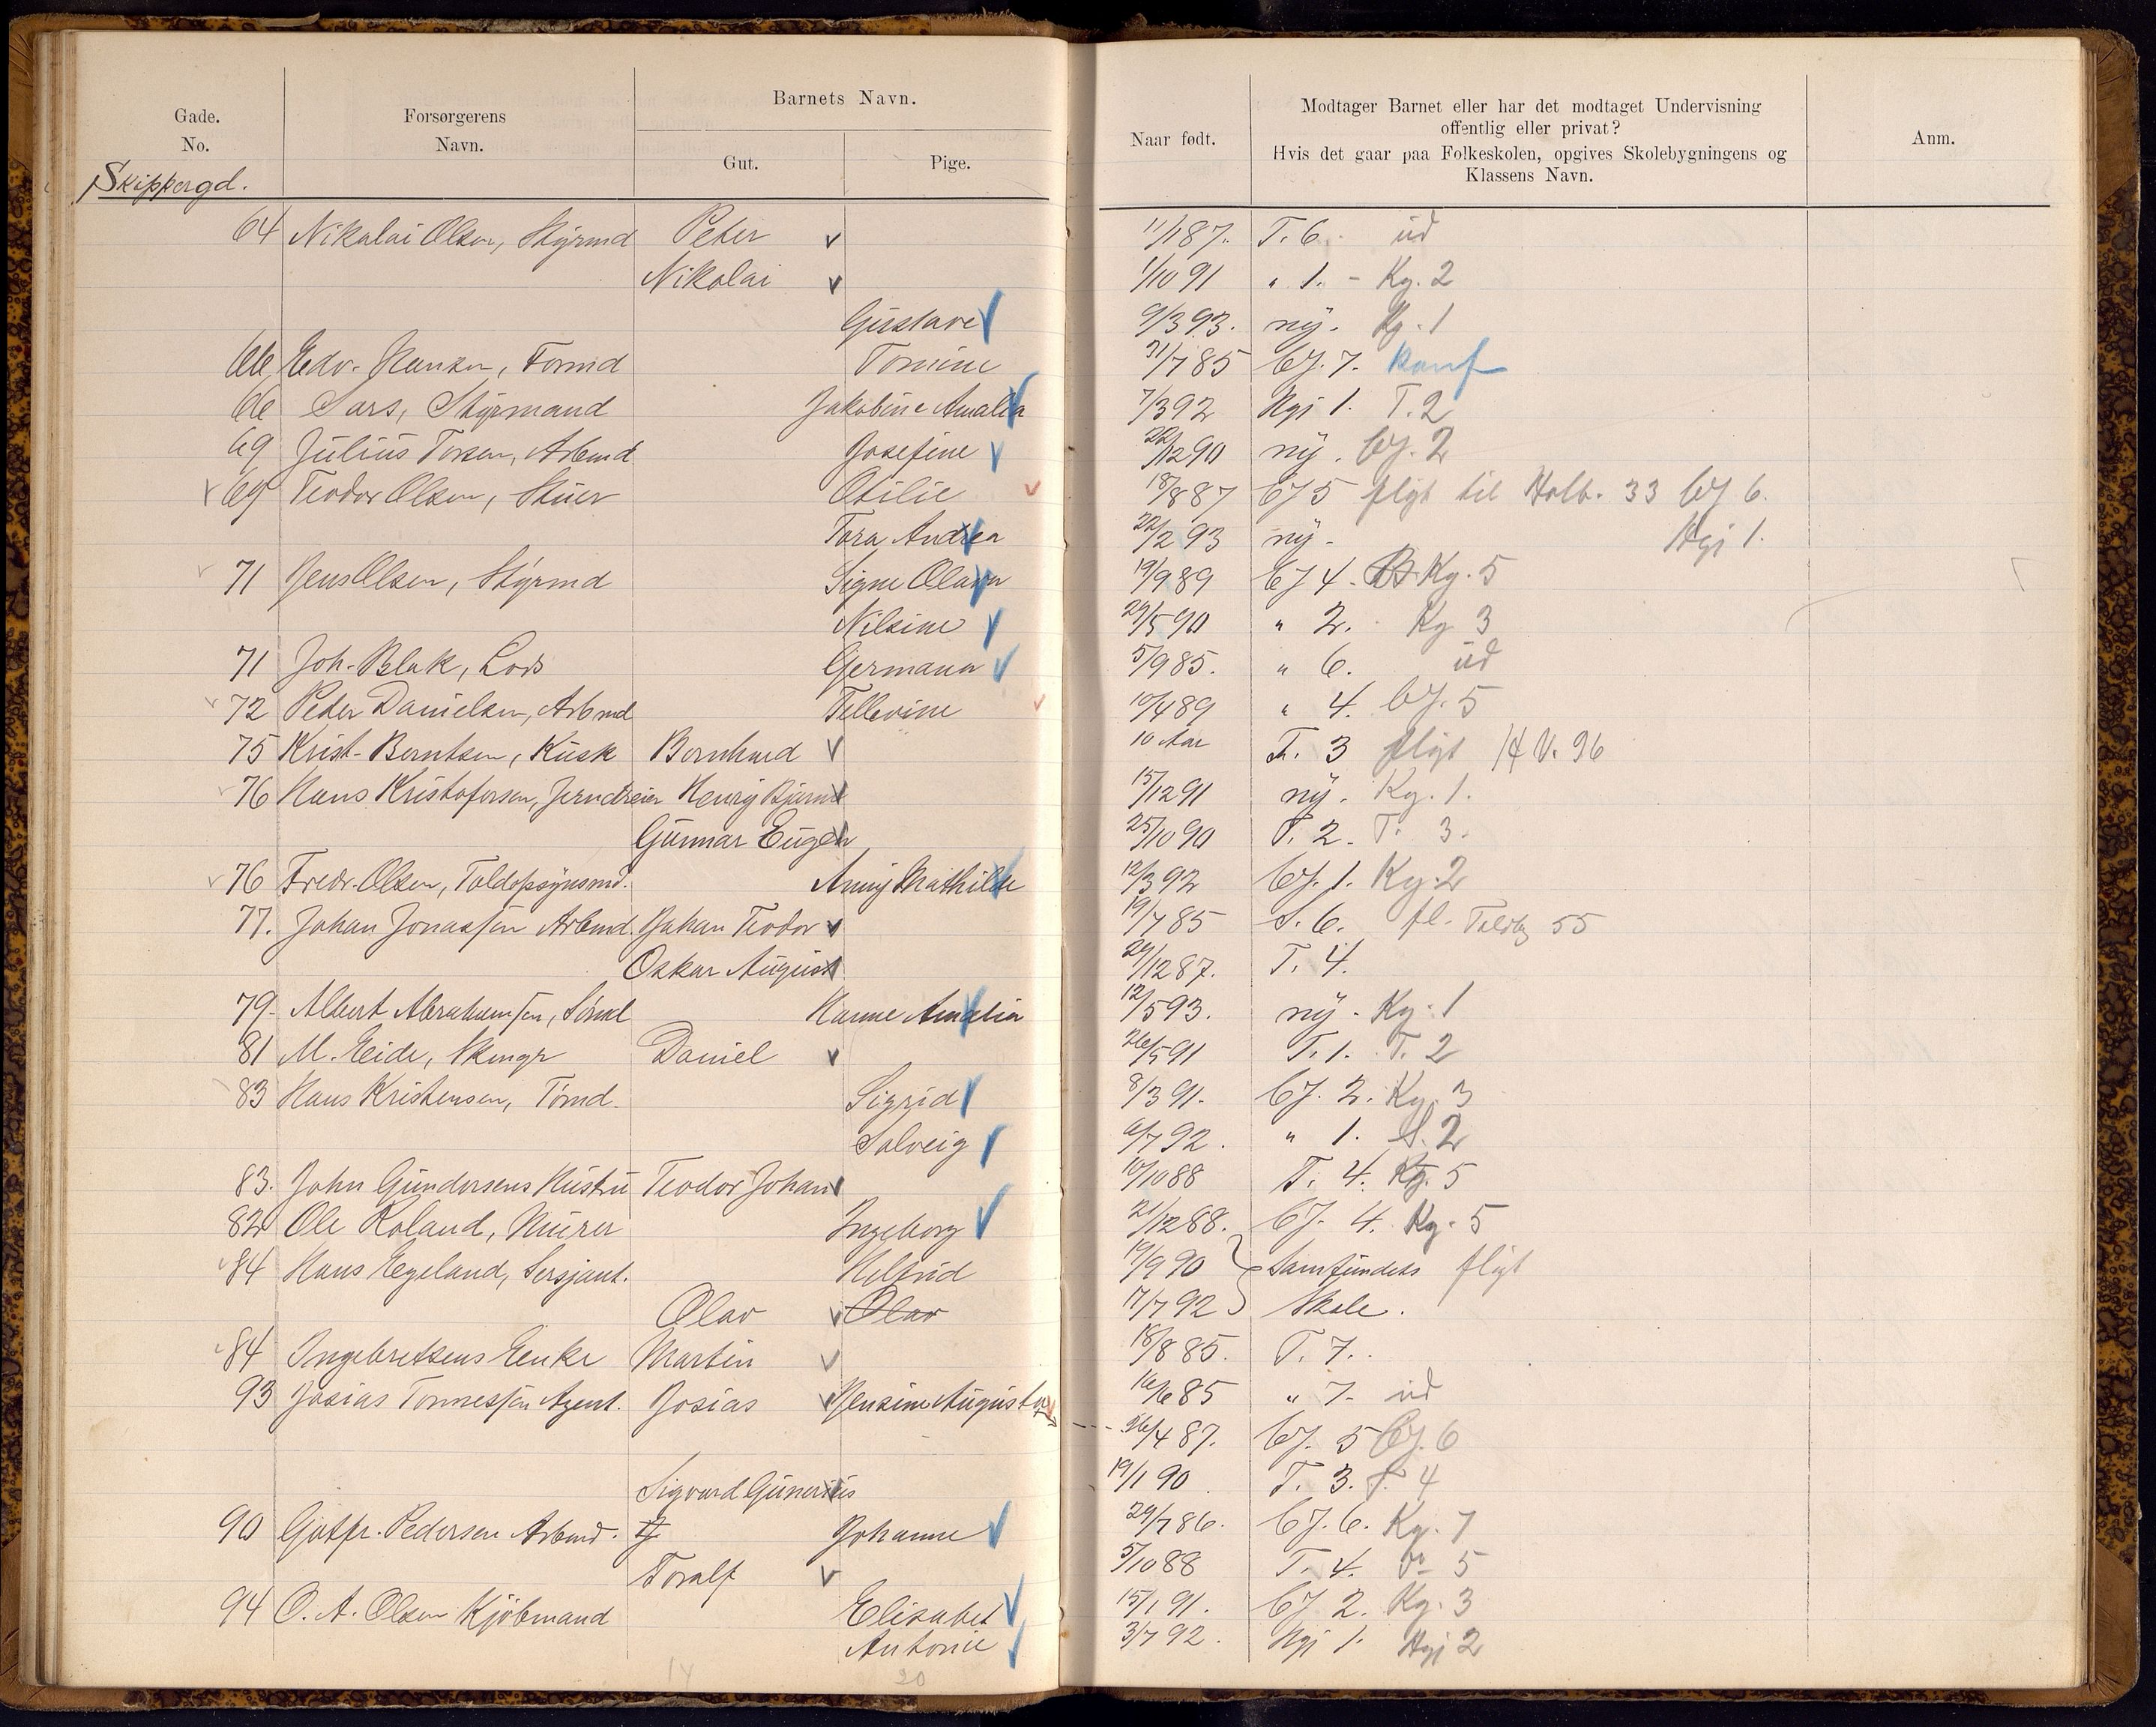 Gade. No. Forsørgerens Navn. Barnets Navn. Gut. Pige. Naar født. Modtager Barnet eller har det modtaget Undervisning offentlig eller privat? Hvis det gaar paa Folkeskolen, opgives Skolebygningens og Klassens Navn. Anm.
Skippergd.
64 Nikolai Olsen, Styrmd Peter 11/1 87. T. 6. ud
Nikolai 1/10 91 " 1. - Kg. 2
Gustave 9/3 93. ny. Kg. 1
66 Edv. Hansen, Formd Tomine 31/7 85 bJ. 7. konf
66 Lars, Styrmand Jakobine Amalia 7/3 92 Hgj 1. T. 2
69 Julius Torsen, Arbmd Josefine 22/12 90 ny. bJ. 2
69 Teodor Olsen, Stuer Otilie 18/8 87 bJ 5 flyt til Holb. 33 bJ 6.
Tora Andrea 22/2 93 ny - Hgj 1.
71 Jens Olsen, Styrmd Signe Olava 19/9 89 bJ 4. Kg. 5
Nilsine 29/5 90 " 2. Kg 3
71 Joh. Blak, Lods Germana 5/9 85. " 6. ud
72 Peder Danielsen, Arbmd Tellevine 10/4 89 " 4. bJ. 5
75 Krist. Berntsen, Kusk Bernhard 10 Aar T. 3 flyt H V. 96
76 Hans Kristofersen, Jerndreier Henry Bjarne 15/12 91 ny. Kg. 1.
Gunnar Eugen 25/10 90 T. 2. T. 3.
76 Fredr. Olsen, Toldopsynsmd. Anny Mathilde 12/3 92 bJ. 1. Kg. 2
77. Johan Jonassen Arbmd. Johan Teodor 19/7 85 T. 6. fl. Toldbg 55
Oskar August 29/12 87. T. 4.
79. Albert Abrahamsen, Sømd Hanne Amalia 12/5 93. ny - Kg. 1
81 M. Eide, Daniel 26/5 91 T. 1. T. 2
83 Hans Kristensen, Tømd. Sigrid 8/3 91. bJ. 2. Kg. 3
Solveig 6/7 92. " 1. 2
83. John Gundersens Hustru Teodor Johan 10/10 88 T. 4. Kg. 5
82 Ole Roland, Murer Ingeborg 21/12 88. bJ. 4. Kg. 5
84 Hans Egeland, Sersjant. Helfrid 19/9 90 Samfundets flyt
Olav Olav 17/7 92 Skole.
84 Ingebretsens Enke Martin 18/8 85. T. 7.
93 Josias Tønnessen Agent. Josias Jensine Augusta 16/6 85 " 7. ud
26/4 87. bJ. 5 bJ. 6
Sigvard Gunerius 19/1 90. T. 3. T. 4
90 Gotfr. Pedersen Arbmd. Johanne 29/7 86. bJ. 6. Kg. 7
Toralf 5/10 88 T. 4. 5
94 O. A. Olsen Kjöbmand Elisabet 15/1 91. bJ 2. Kg. 3
Antonie 3/7 92. Hgj 1. Hgj 2
14 20